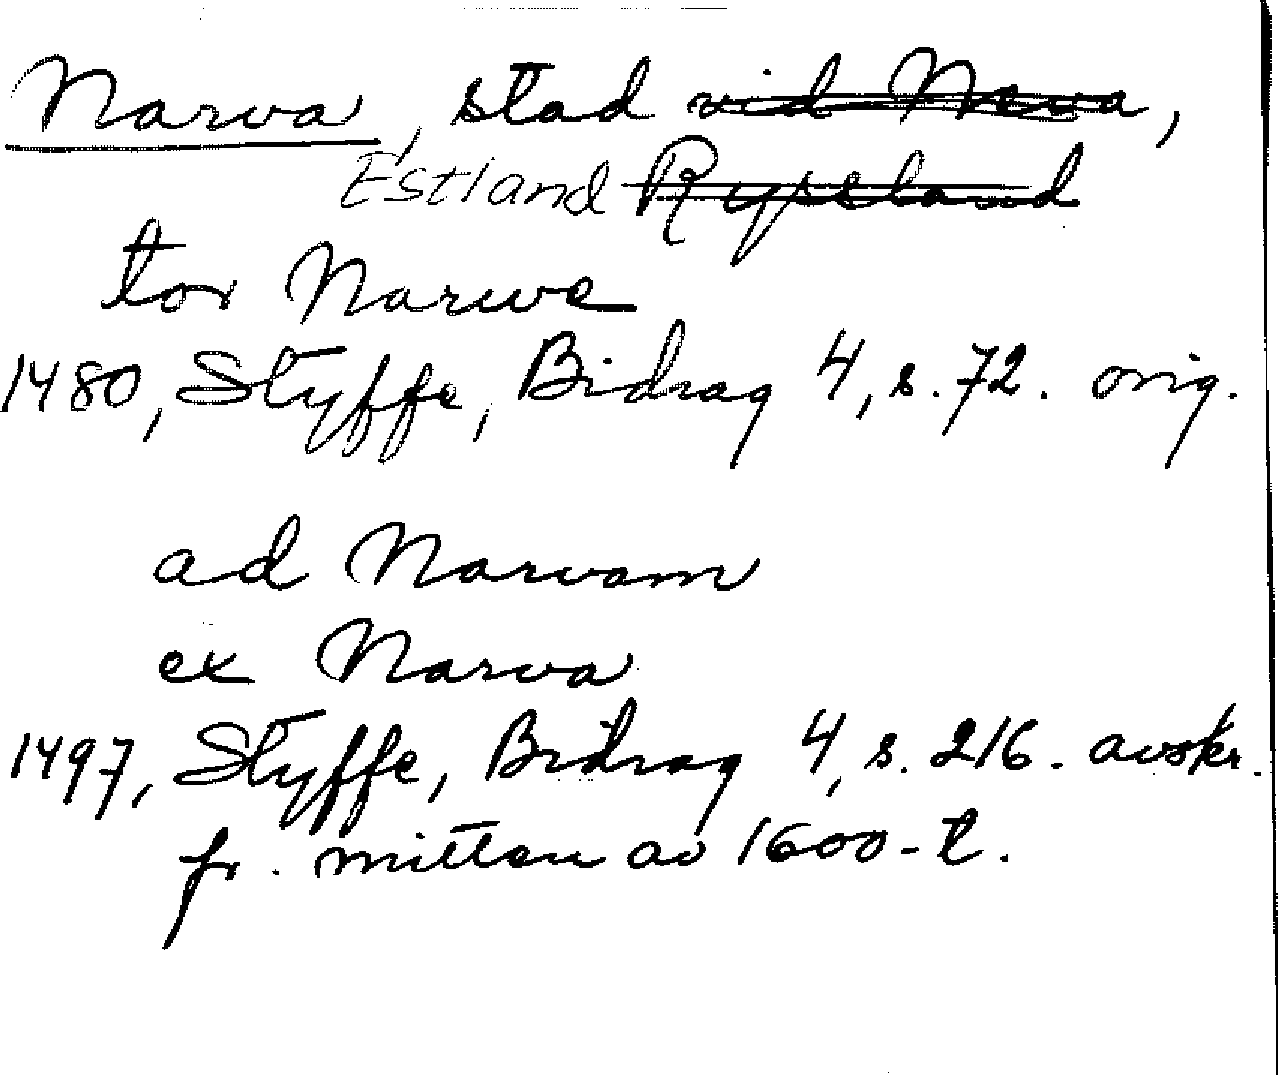 Narva, stad vid Neva,
Estland Ryssland
tor Narwe
1480, Styffe, Bidrag 4, s. 72. orig.
ad Narvam
ex Narva
1497, Styffe, Bidrag 4, s. 216. avskr.
fr. mitten av 1600-t.